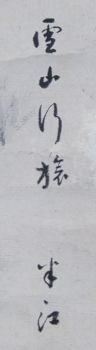 雪山行旅 半江